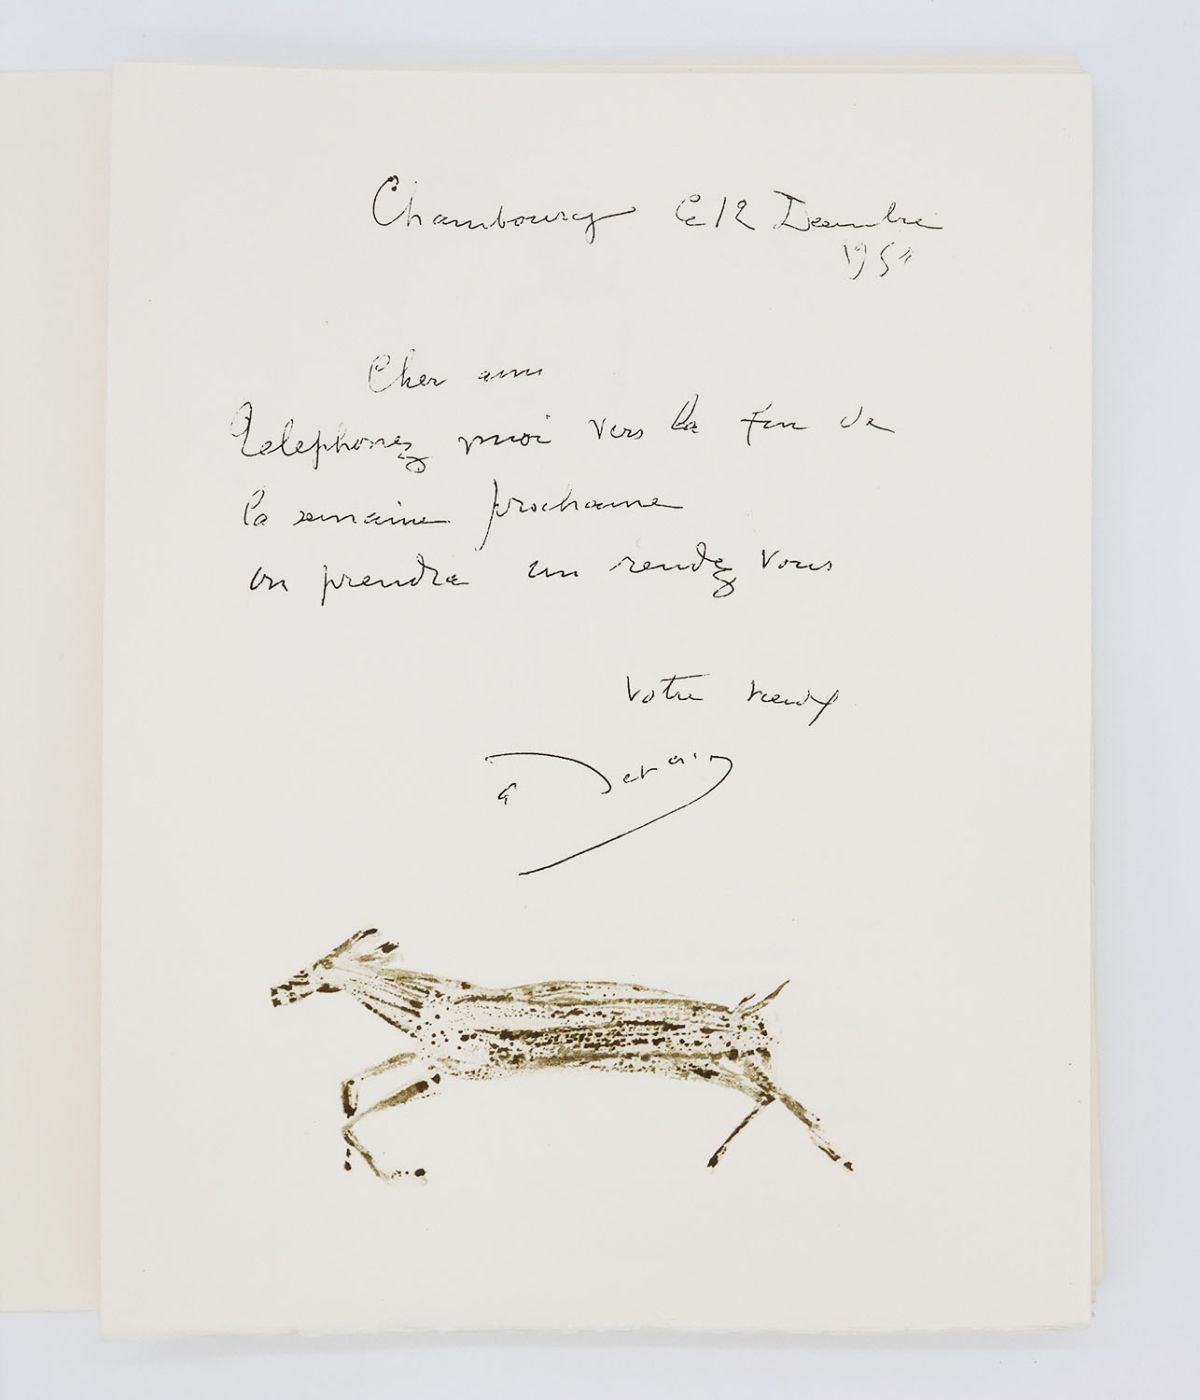 Chambourcy Le 12 Decembre
195
Cher ami
telephonez moi vers la fin de
la semaine prochaine
on prendra un rendez vous
Votre vieux
a Derain